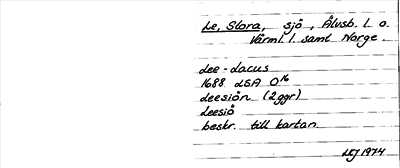 Le, Stora, sjö, Älvsb. l. o.
Värml. l. samt Norge.
Lee-Lacus
1688 LSA O16
Leesiön (2ggr)
Leesiö
beskr. till kartan
LEJ 1974